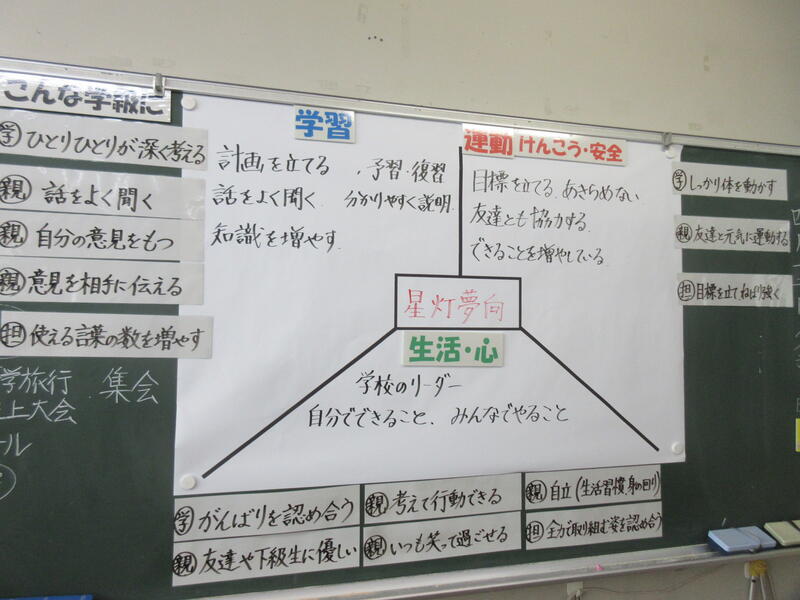 こんな学級に
学 ひとりひとりが深く考える
親 話をよく聞く
親 自分の意見をもつ
親 意見を相手に伝える
担 使える言葉の数を増やす
学旅行 集会
上大会
ール
学習
計画を立てる ・予習・復習
話をよく聞く 分かりやすく説明
知識を増やす
運動 けんこう・安全
目標を立てる あきらめない
友達とも協力する
できることを増やしている
学 しっかり体を動かす
親 友達と元気に運動する
担 目標を立てねばり強く
星灯夢向
生活・心
学校のリーダー
自分でできること、みんなでやること
学 がんばりを認め合う
親 考えて行動できる
親 自立(生活習慣、身の回り)
親 友達や下級生に優しい
親 いつも笑って過ごせる
担 全力で取り組む姿を認め合う